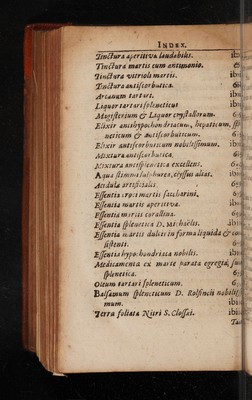 INDEX.
Tinctura aperitiva laudabilis. ibi
Tinctura martis cum antimonio. 6
Tinctura vitrioli martis. ibi
Tinctura antiscorbutica. 6
Arcanum tartari. ibi
Liquor tartari spleneticus ibi
Magisterium & Liquor crystallorum. 6
Elixir antihypochondriacum, hepaticum, sp
neticum & antiscorbuticum. 6
Elixir antiscorbuticum nobilissimum. ibi
Mixtura antiscorbutica. 6
Mixtura antisplenitica excellens. 6
Aqua stimmi sulphurea, clyssus alias. ibi
Acidulæ artificiales. 6
Essentia croci martis saccharini. 6
Essentia martis aperitiva. ibi
Essentia martis corallina. 6
Essentia splenetica D. Michaëlis. ibi
Essentia martis dulcis in forma liquida & co
sistenti. 6
Essentia hypochondriaca nobilis. ibi
Medicamenta ex marte parata egregia, su
splenetica. 6
Oleum tartari spleneticum. 6
Balsamum spleneticum D. Rolfincii nobilis
mum. ibi
Terra foliata Nitri S. Clossæi. ibi